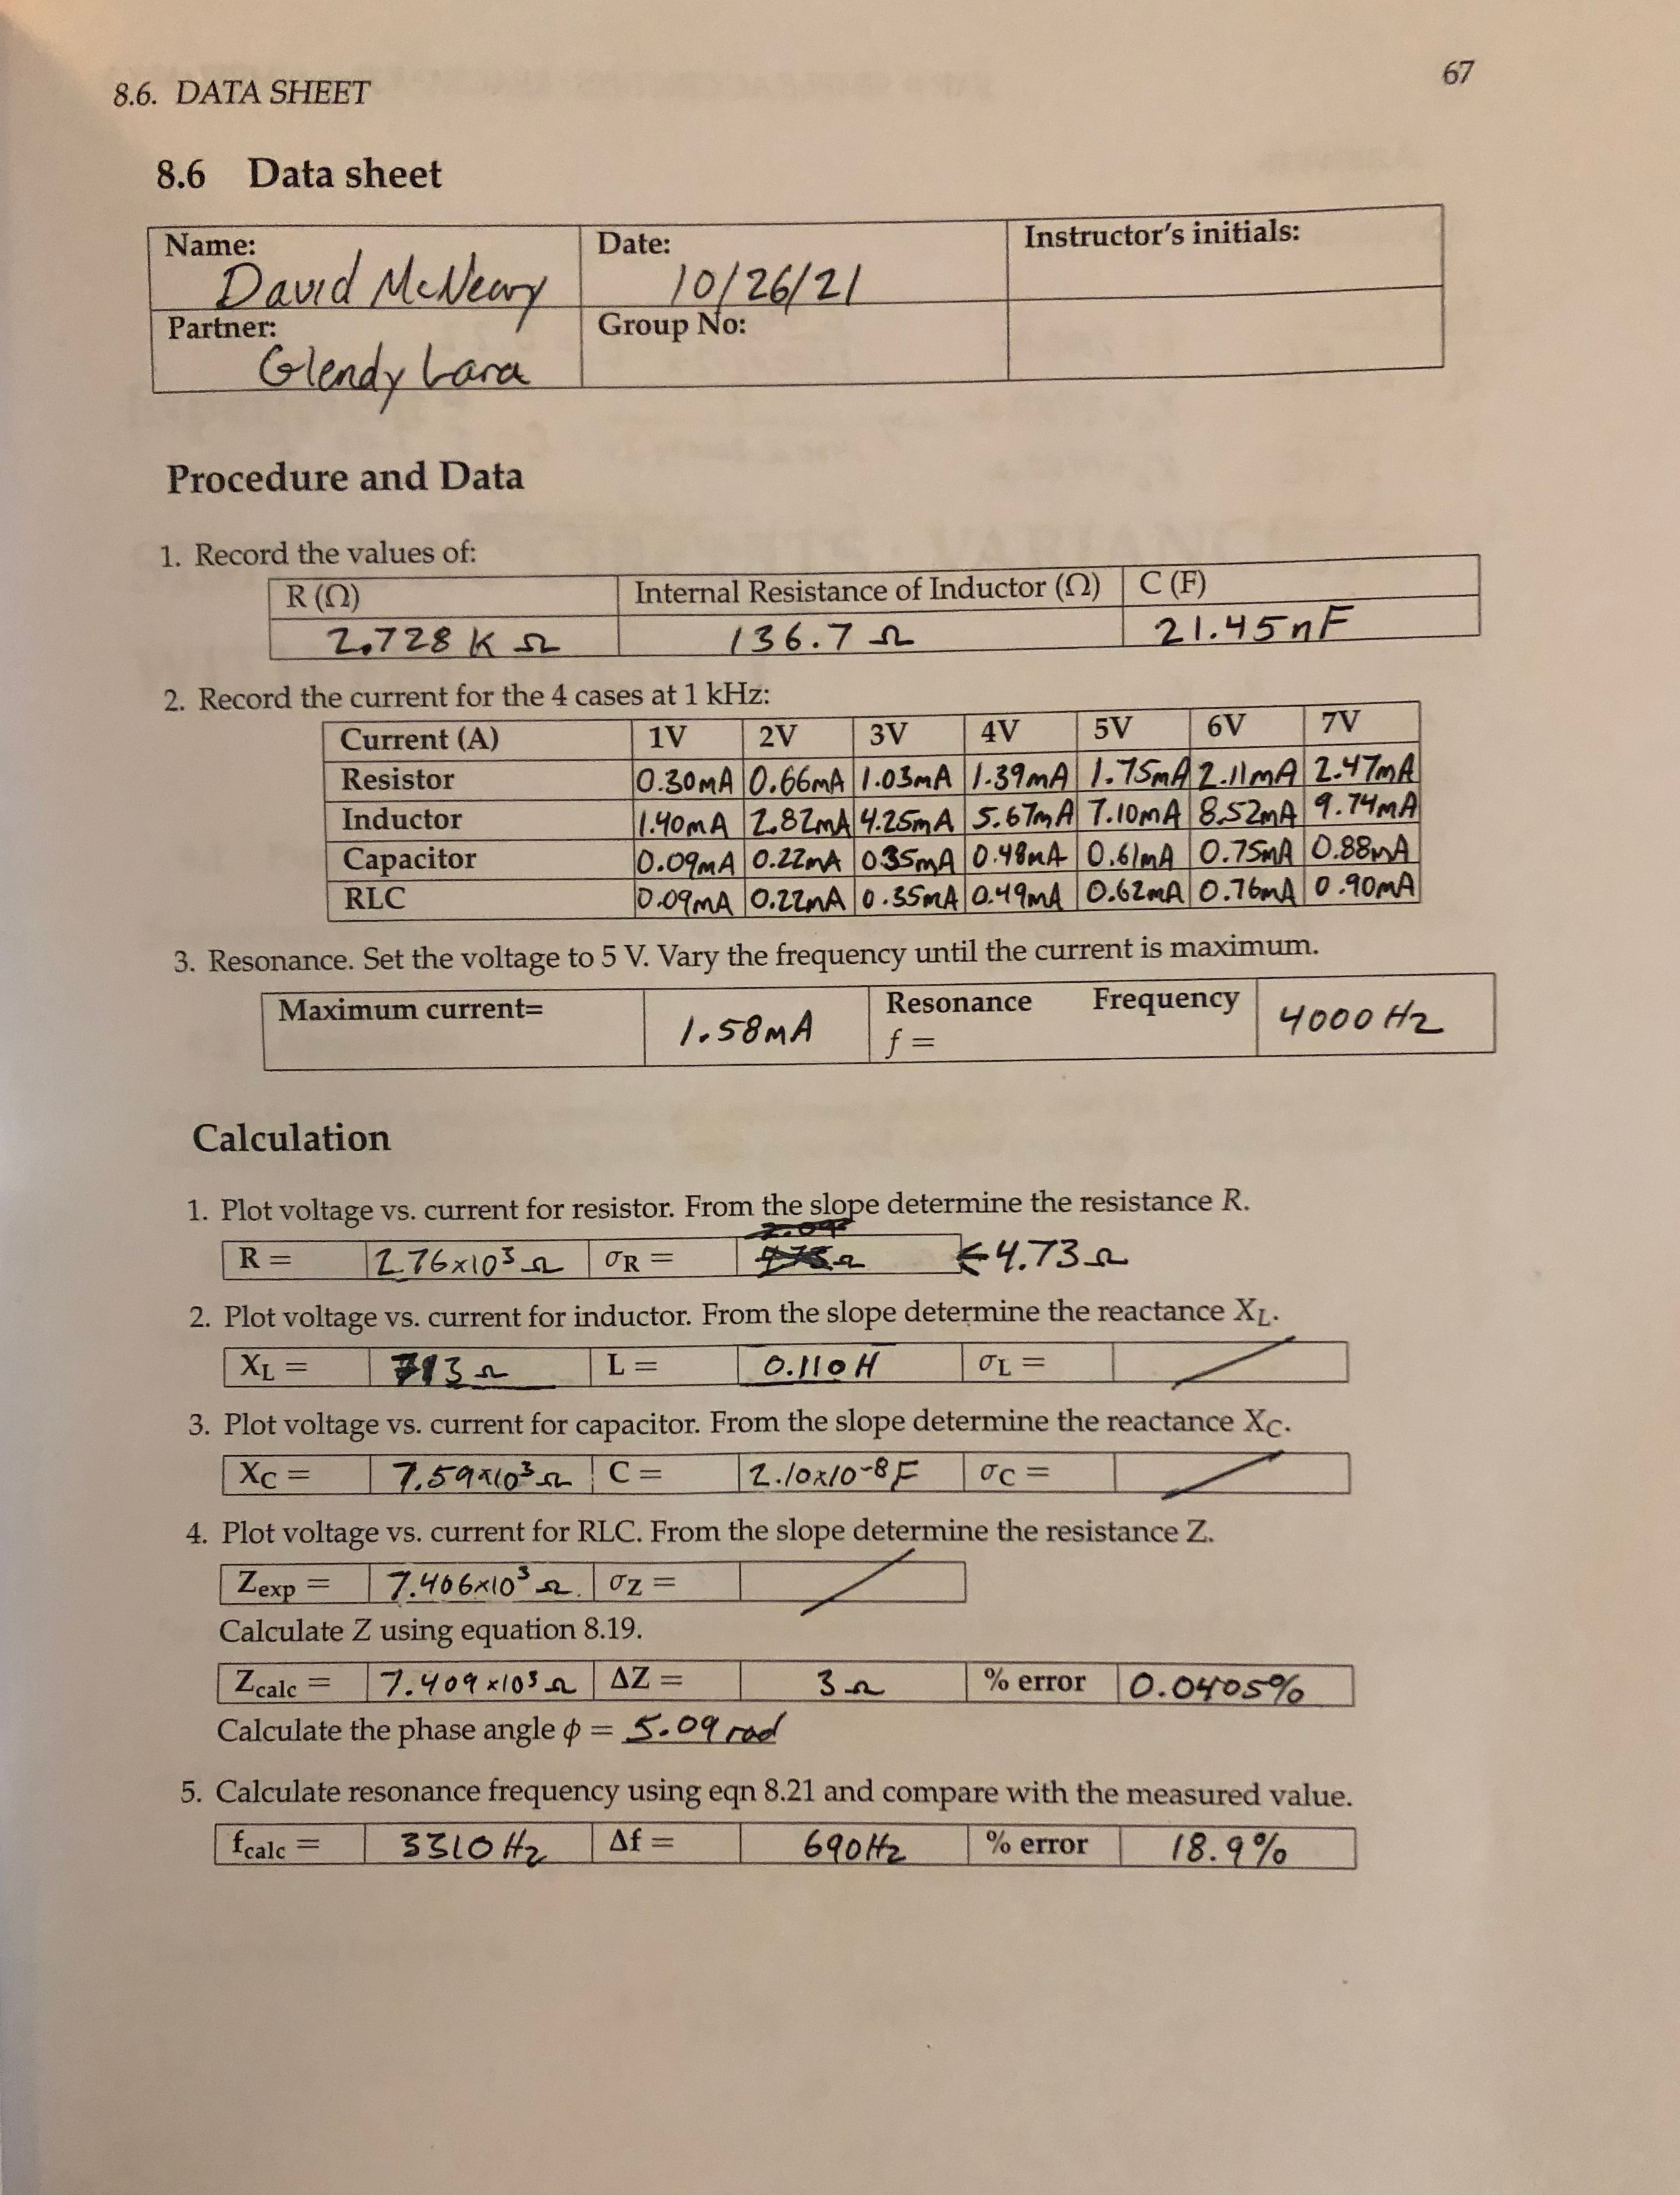 8.6. DATA SHEET 67
8.6 Data sheet
Name: Date: Instructor's initials:
David McNeary 10/26/21
Partner: Group No:
Glendy Lara
Procedure and Data
1. Record the values of:
R (Ω) Internal Resistance of Inductor (Ω) C (F)
2.728 K Ω 136.7 Ω 21.45nF
2. Record the current for the 4 cases at 1 kHz:
Current (A) 1V 2V 3V 4V 5V 6V 7V
Resistor 0.30mA 0.66mA 1.03mA 1.39mA 1.75mA 2.11mA 2.47mA
Inductor 1.40mA 2.82mA 4.25mA 5.67mA 7.10mA 8.52mA 9.74mA
Capacitor 0.09mA 0.22mA 0.35mA 0.48mA 0.61mA 0.75mA 0.88mA
RLC 0.09mA 0.22mA 0.35mA 0.49mA 0.62mA 0.76mA 0.90mA
3. Resonance. Set the voltage to 5 V. Vary the frequency until the current is maximum.
Maximum current= 1.58mA Resonance Frequency 4000 Hz
f =
Calculation
1. Plot voltage vs. current for resistor. From the slope determine the resistance R.
R = 2.76×10³ Ω σR = ←4.73Ω
2. Plot voltage vs. current for inductor. From the slope determine the reactance XL.
XL = 713 Ω L = 0.110 H σL =
3. Plot voltage vs. current for capacitor. From the slope determine the reactance XC.
XC = 7.59×10³ Ω C = 2.10×10-8 F σC =
4. Plot voltage vs. current for RLC. From the slope determine the resistance Z.
Zexp = 7.406×10³ Ω. σZ =
Calculate Z using equation 8.19.
Zcalc = 7.409×10³ Ω ΔZ = 3 Ω % error 0.0405%
Calculate the phase angle ϕ = 5.09 rad
5. Calculate resonance frequency using eqn 8.21 and compare with the measured value.
fcalc = 3310 Hz Δf = 690Hz % error 18.9%